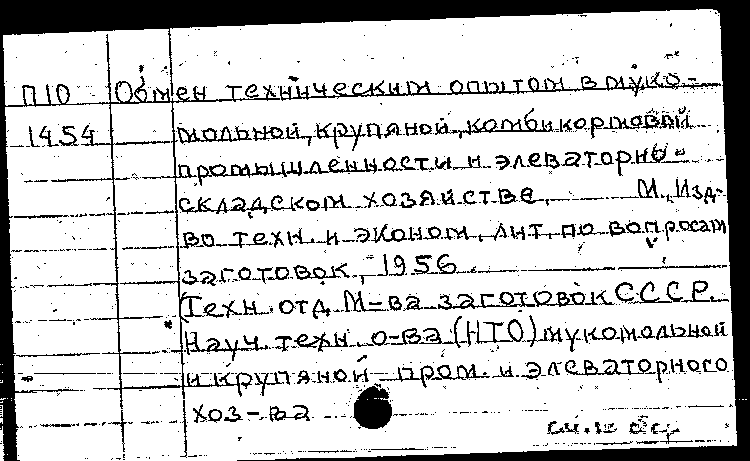 П10 Обмен техническим опытом в муко-
1454 мольной, крупяной, комбикормовой
промышленности и элеваторно-
складском хозяйстве. М., Изд-
во техн. и эконом. лит. по вопросам
заготовок, 1956.
(Техн. отд. М-ва заготовок СССР.
Науч. техн. о-ва (НТО) мукомольной
и крупяной пром. и элеваторного
хоз-ва
см. на об